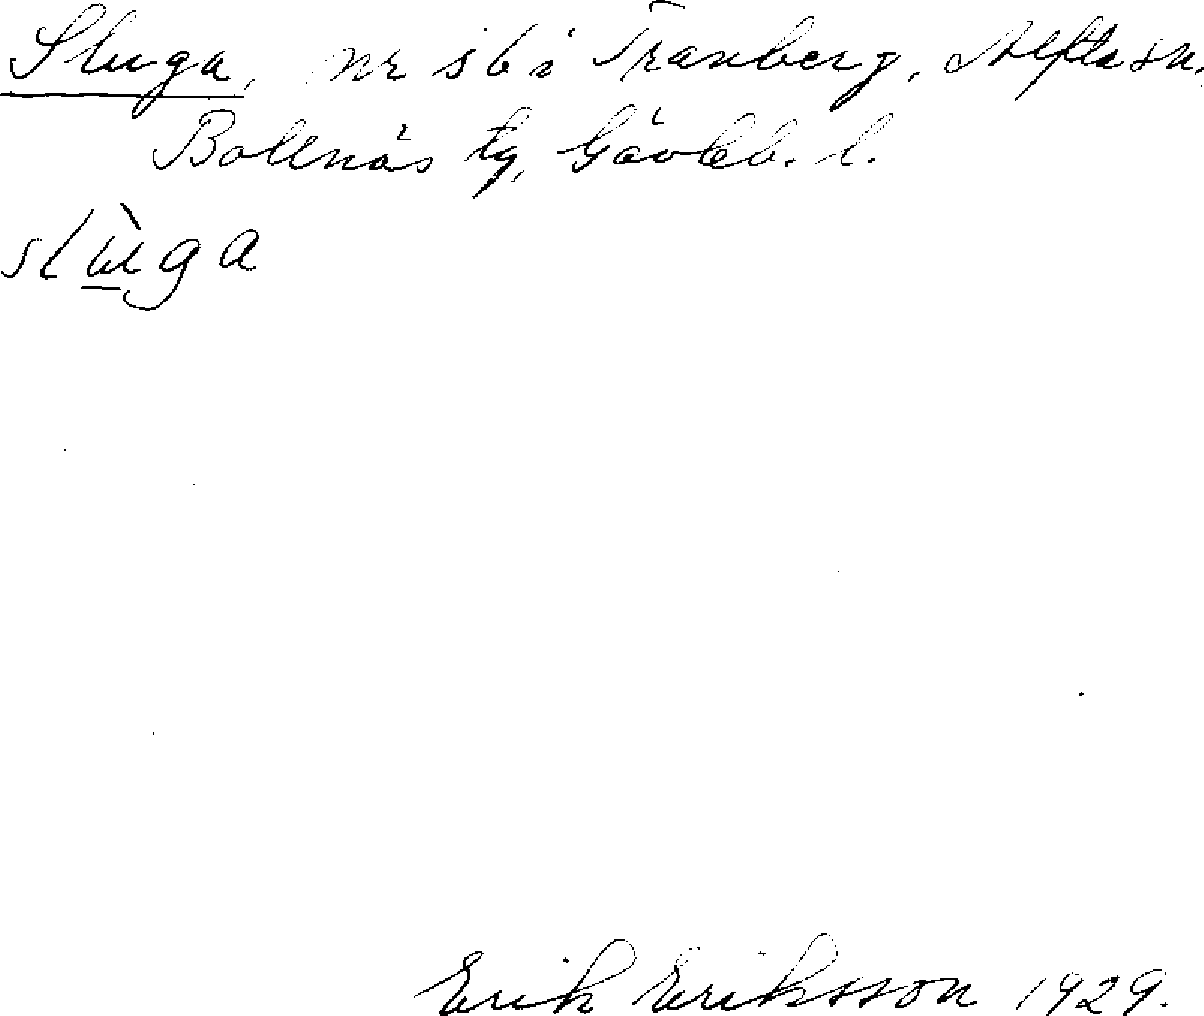 Sluga, nr 56 i Tranberg, Alfta sn,
Bollnäs tg, Gävleb. l.
slùga
Erik Eriksson 1929.